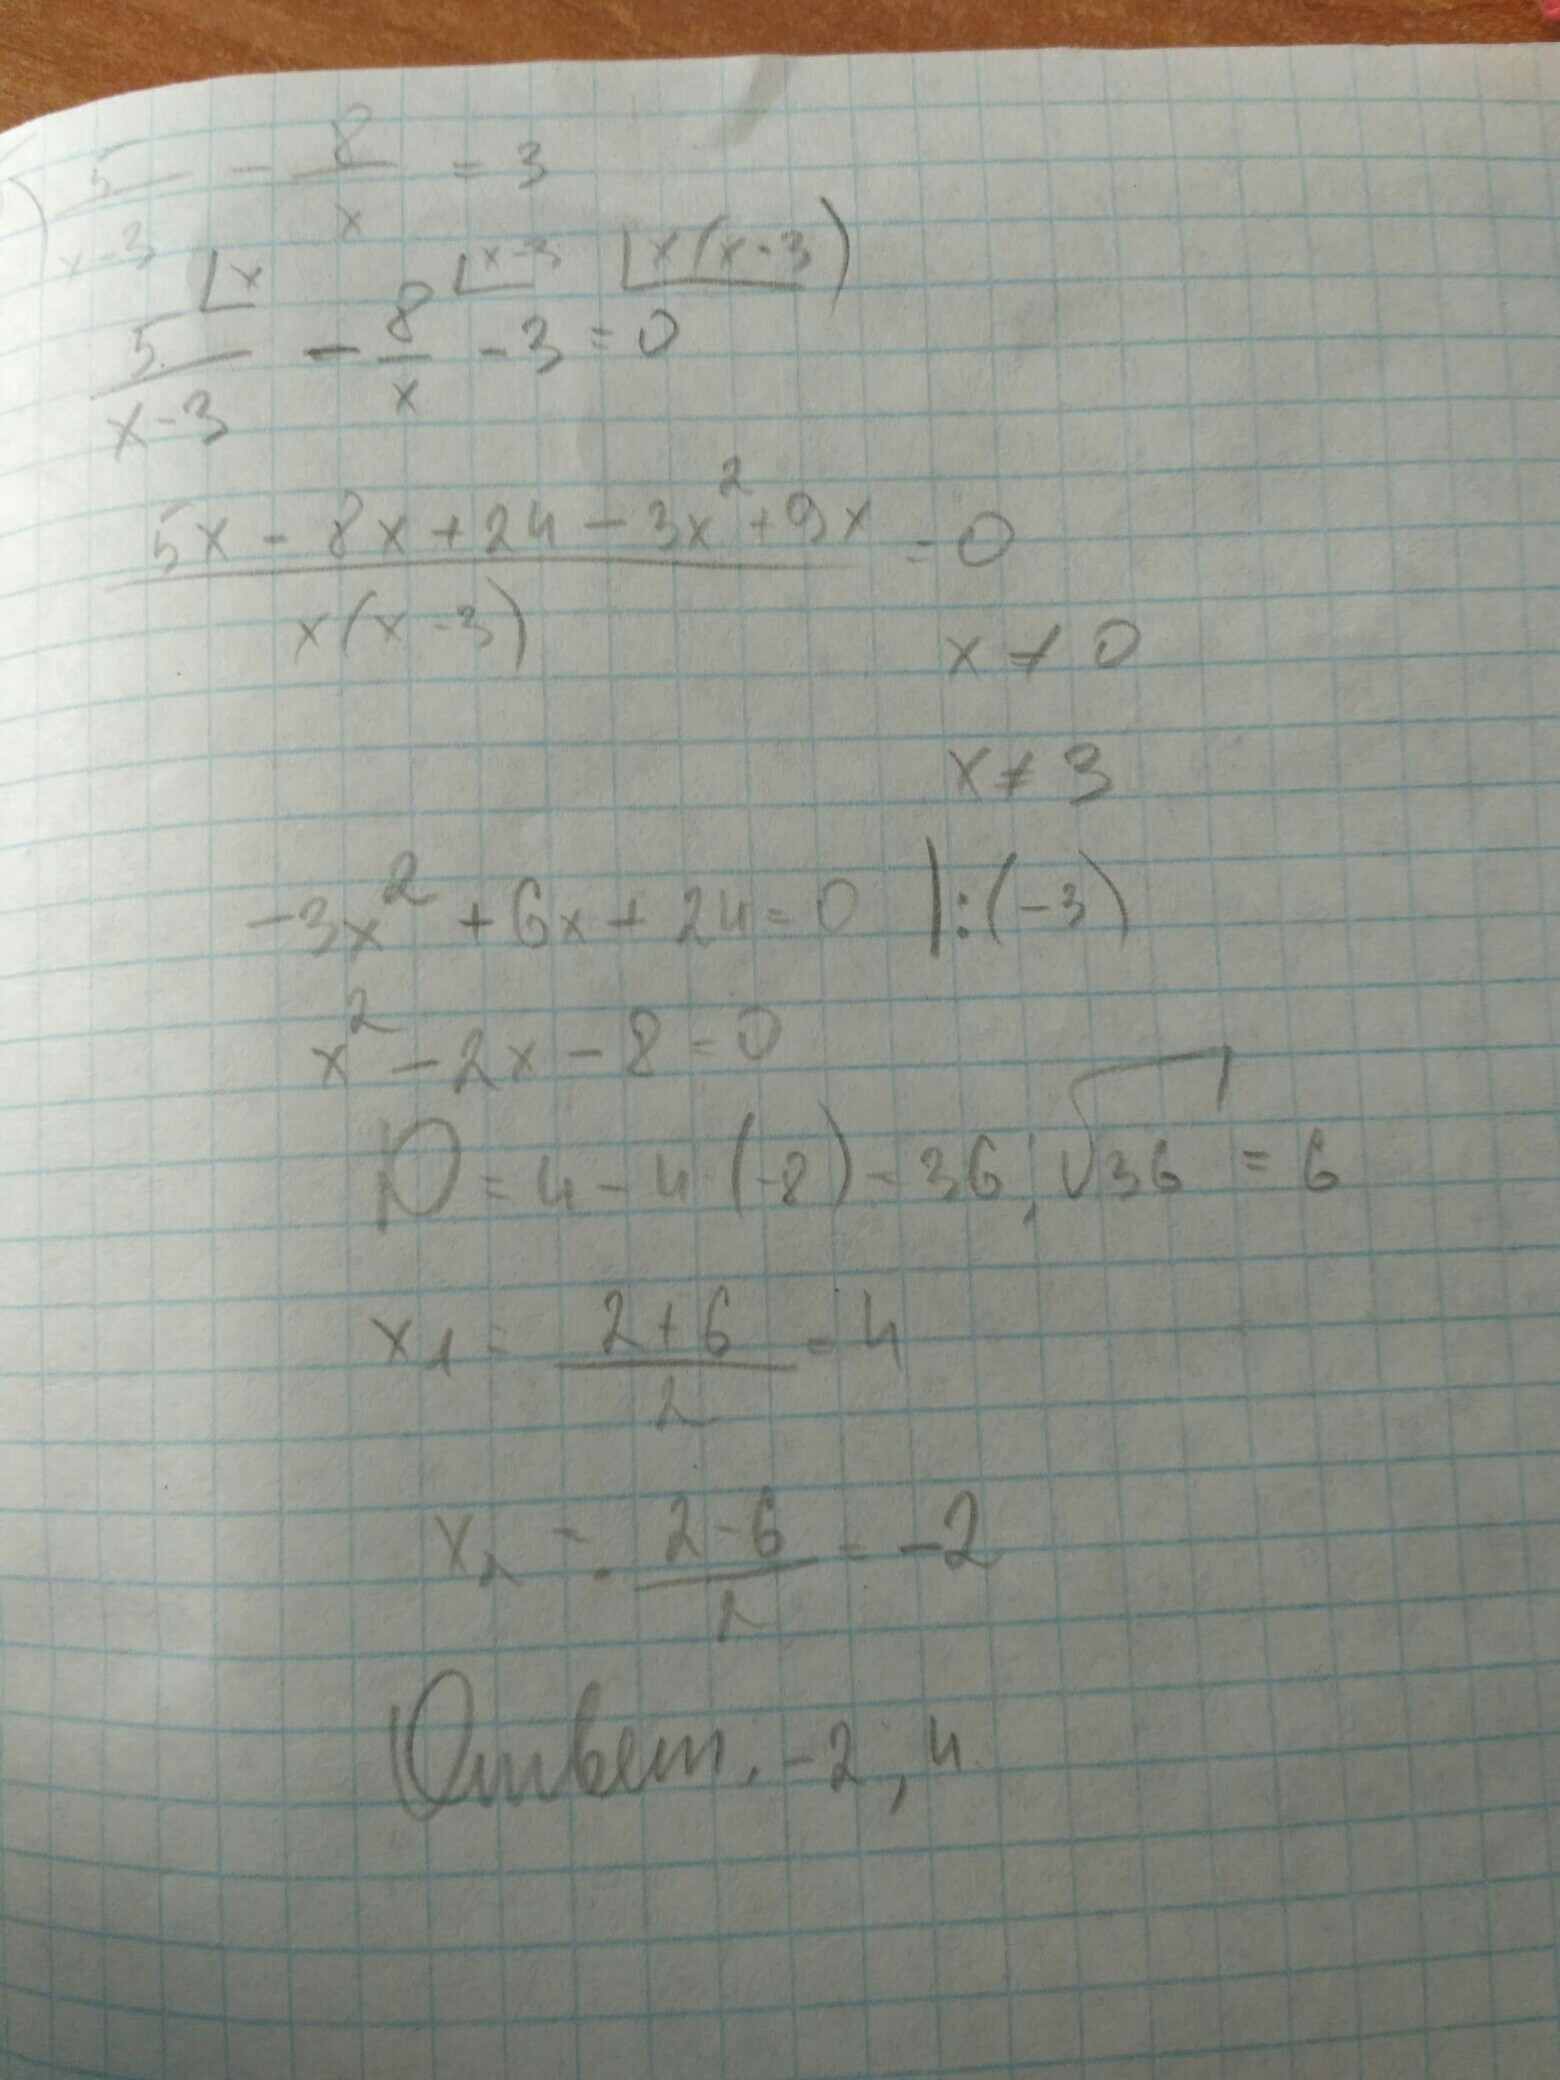 ) 5/(x-3) - 8/x = 3
5/(x-3) ⌊x - 8/x ⌊x-3 - 3 ⌊x(x-3) = 0
(5x - 8x + 24 - 3x² + 9x)/(x(x-3)) = 0
x ≠ 0
x ≠ 3
-3x² + 6x + 24 = 0 |:(-3)
x² - 2x - 8 = 0
D = 4 - 4·(-8) = 36; √36 = 6
x₁ = (2+6)/2 = 4
x₂ = (2-6)/2 = -2
Ответ. -2, 4.